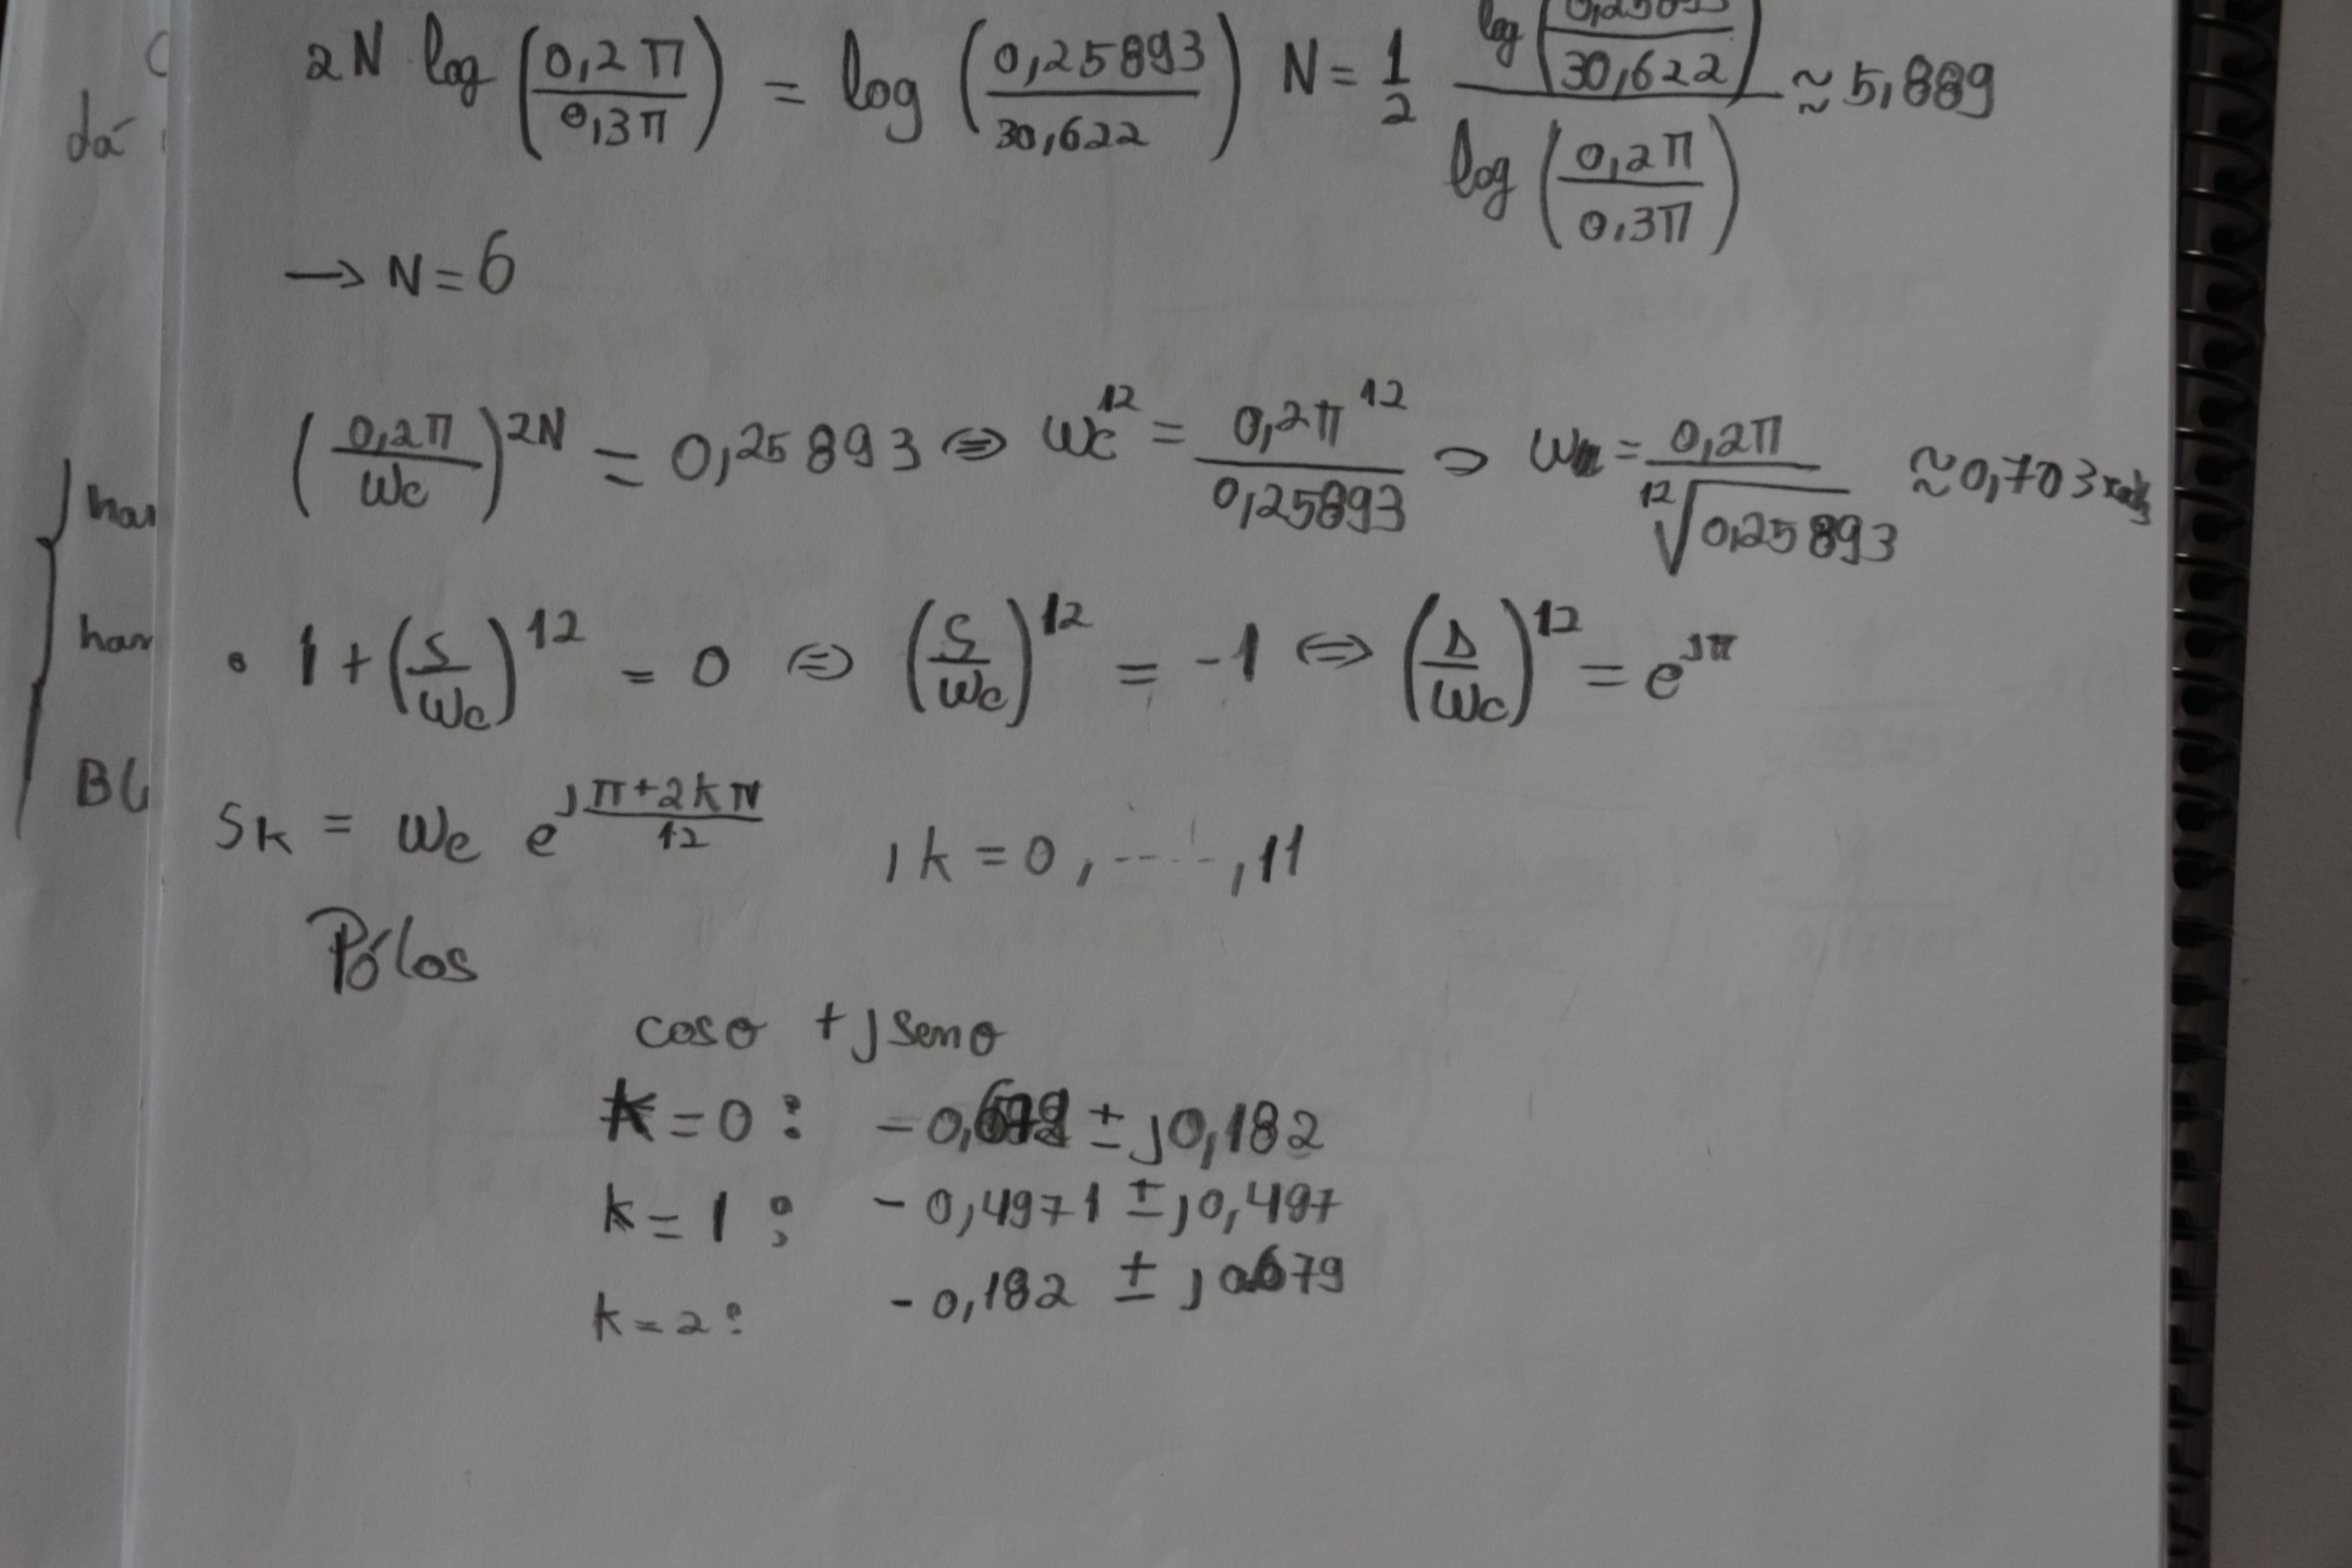 2N log (0,2π / 0,3π) = log (0,25893 / 30,622) N = 1/2 log (0,25893 / 30,622) / log (0,2π / 0,3π) ≈ 5,889
dá
→ N = 6
(0,2π / wc)^2N = 0,25893 ⇔ wc^12 = 0,2π^12 / 0,25893 ⇒ w = 0,2π / ^12√0,25893 ≈ 0,703
har
har
• 1 + (s / wc)^12 = 0 ⇔ (s / wc)^12 = -1 ⇔ (s / wc)^12 = e^jπ
sk = wc e^j (π+2kπ / 12) , k = 0, ......, 11
Pólos
cosθ + j senθ
k = 0 : - 0,679 ± j0,182
k = 1 : - 0,4971 ± j0,497
k = 2 : - 0,182 ± j 0,679